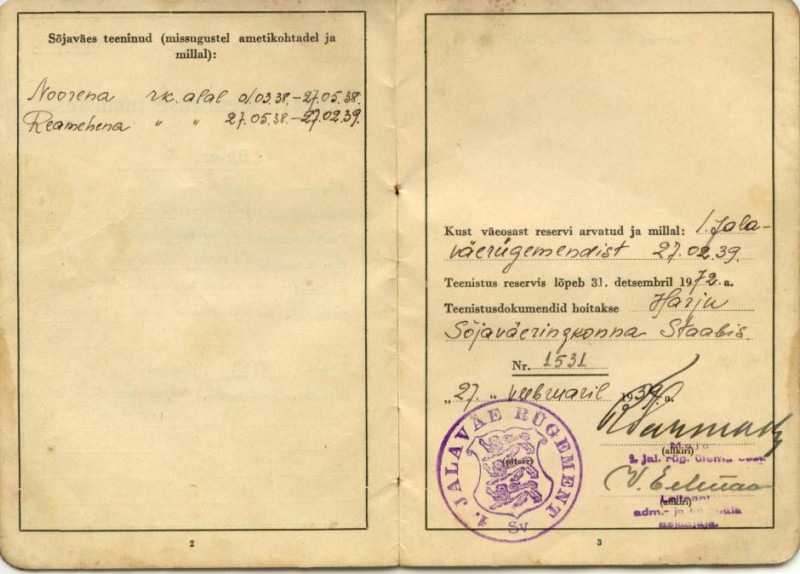 Sõjaväes teeninud (missugustel ametikohtadel ja
millal):
Noorena rk. alal 01.03.38.–27.05.38.
Reamehena " " 27.05.38.–27.02.39.
2
Kust väeosast reservi arvatud ja millal: 1. Jala-
väerügemendist 27.02.39.
Teenistus reservis lõpeb 31. detsembril 1972. a.
Teenistusdokumendid hoitakse Harju
Sõjaväeringkonna Staabis.
Nr. 1531
„27. " veebruaril 1939. a.
(allkiri)
Major
1. jal. rüg. ülema
(pitser)
1. JALAVÄE RÜGEMENT
SV
(allkiri)
Leitnant
adm.- ja
asjaajaja.
3